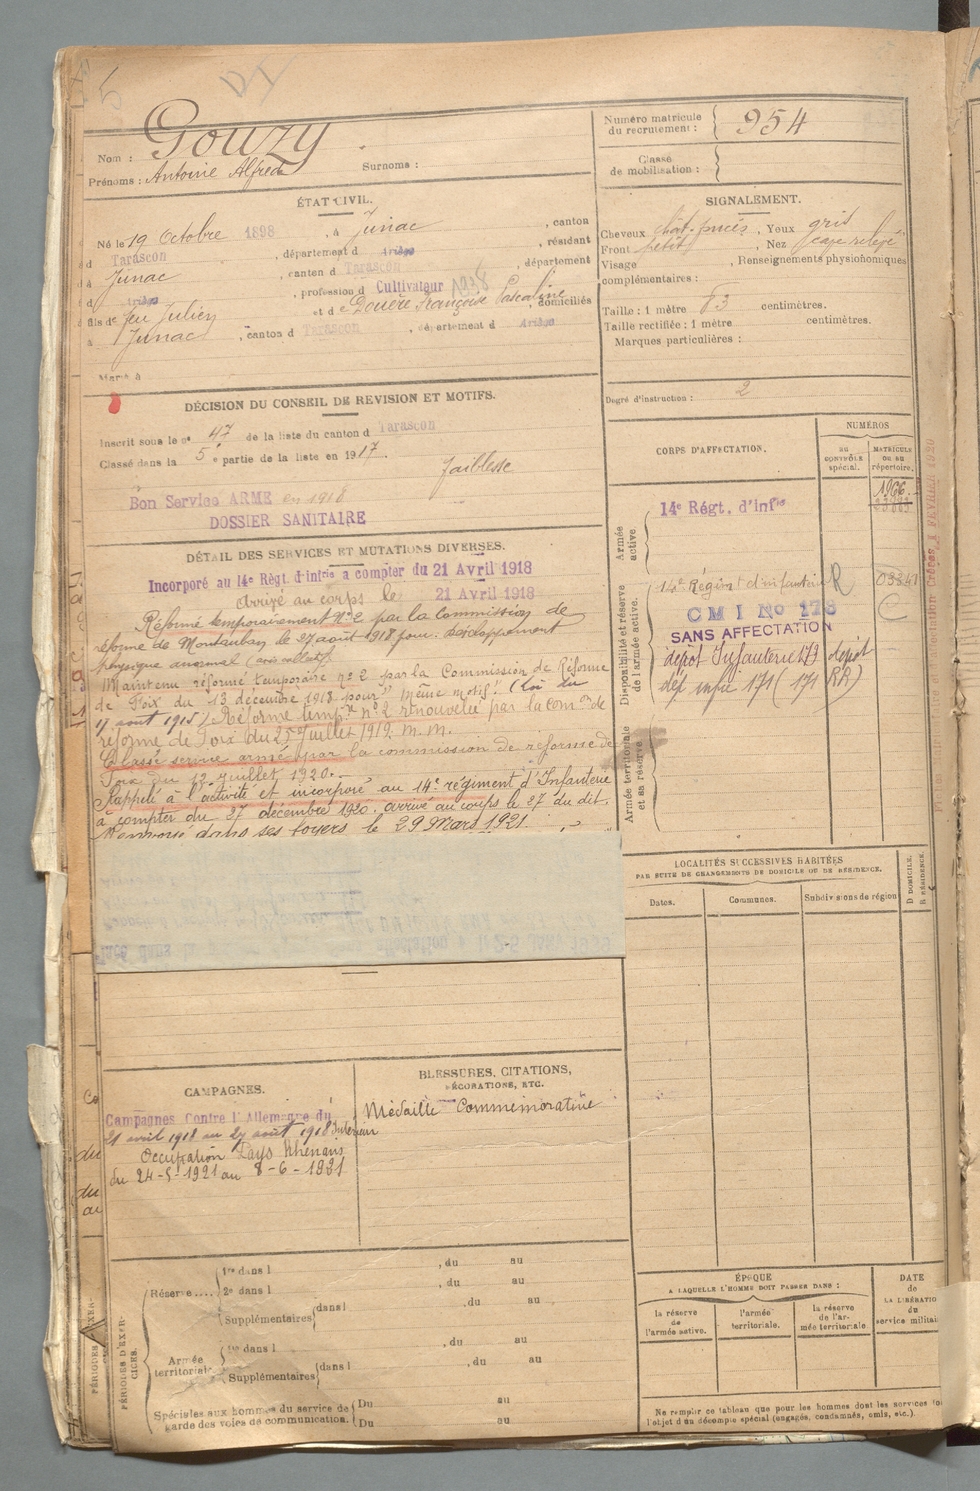 Nom : Gouzy
Prénoms : Antoine Alfred
Surnoms :
Numéro matricule du recrutement : 954
Classe de mobilisation :
ÉTAT CIVIL.
Né le 19 Octobre 1898, à Junac, canton
d Tarascon, département d Ariège, résidant
à Junac, canton d Tarascon, département
d Ariège, profession d Cultivateur
fils de feu Julien et d Douère Françoise Pascaline, domiciliés
à Junac, canton d Tarascon, département d Ariège
Marié à
SIGNALEMENT.
Cheveux chât. foncés, Yeux gris
Front petit, Nez cave relevé
Visage , Renseignements physionomiques
complémentaires :
Taille : 1 mètre 63 centimètres.
Taille rectifiée : 1 mètre centimètres.
Marques particulières :
Degré d'instruction : 2
DÉCISION DU CONSEIL DE REVISION ET MOTIFS.
Inscrit sous le n° 47 de la liste du canton d Tarascon
Classé dans la 5e partie de la liste en 1917.
faiblesse
Bon Service ARMÉ en 1918
DOSSIER SANITAIRE
DÉTAIL DES SERVICES ET MUTATIONS DIVERSES.
Incorporé au 14e Régt. d'infrie a compter du 21 Avril 1918
Arrivé au corps le 21 Avril 1918
Réformé temporairement n° 2 par la Commission de
réforme de Montauban le 27 août 1918 pour développement
physique anormal
Maintenu réformé temporaire n° 2 par la Commission de Réforme
de Foix du 13 décembre 1918 pour "même motif" (loi du
17 août 1915) Réforme tempre n° 2 renouvelée par la comon de
réforme de Foix du 25 juillet 1919. M. M.
Classé service armé par la commission de réforme de
Foix du 12 Juillet 1920.
Rappelé à l'activité et incorporé au 14e régiment d'Infanterie
à compter du 27 décembre 1920. arrivé au corps le 27 du dit.
Renvoyé dans ses foyers le 29 Mars 1921
CORPS D'AFFECTATION.
NUMÉROS
AU CONTRÔLE spécial.
MATRICULE OU AU répertoire.
Armée active
14e Régt. d'infie
1966
Disponibilité et réserve de l'armée active.
14e Régimt d'infanterie R
C M I No 178
SANS AFFECTATION
dépôt Infanterie 179 dépôt
dép infie 171 (171 RR)
Armée territoriale et sa réserve
LOCALITÉS SUCCESSIVES HABITÉES
PAR SUITE DE CHANGEMENTS DE DOMICILE OU DE RÉSIDENCE.
Dates.
Communes.
Subdivisions de région
D DOMICILE.
R RÉSIDENCE.
CAMPAGNES.
Campagnes Contre l'Allemagne du
21 avril 1918 au 27 août 1918 Intérieur
Occupation Pays Rhénans
du 24-5-1921 au 8-6-1921
BLESSURES, CITATIONS,
DÉCORATIONS, ETC.
Médaille Commémorative
PÉRIODES D'EXERCICES.
Réserve....
1re dans l , du au
2e dans l , du au
Supplémentaires dans l , du au
Armée territoriale
1re dans l , du au
Supplémentaires dans l , du au
Spéciales aux hommes du service de garde des voies de communication.
Du au
Du au
ÉPOQUE
A LAQUELLE L'HOMME DOIT PASSER DANS :
la réserve de l'armée active.
l'armée territoriale.
la réserve de l'armée territoriale.
DATE
de
LA LIBÉRATIO
du
service militai
Ne remplir ce tableau que pour les hommes dont les services
l'objet d'un décompte spécial (engagés, condamnés, omis, etc.).